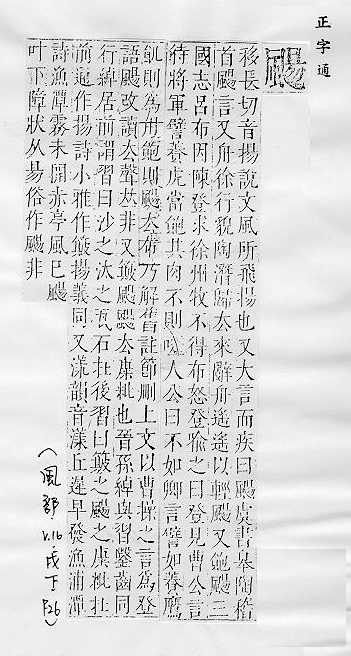 正字通
颺
移長切音揚說文風所飛揚也又大言而疾曰颺虞書皋陶稽
首颺言又舟徐行貌陶濳歸去來辭舟遥遥以輕颺又飽颺三
國志呂布因陳登求徐州牧不得布怒登喩之曰登見曹公言
待將軍譬養虎當飽其肉不則噬人公曰不如卿言譬如養鷹
飢則為用飽則颺去布乃解舊註節刪上文以曹操之言為登
語颺改讀去聲𠀤非又簸颺颺去糠粃也晉孫綽與習鑿齒同
行綽居前謂習曰沙之汰之瓦石在後習曰簸之颺之糠粃在
前通作揚詩小雅作簸揚義同又漾韻音漾丘遲早發漁浦潭
詩漁潭霧未開赤亭風巳颺
叶下障狀从昜俗作颺非
(風部 V.16 戌下 P.26)